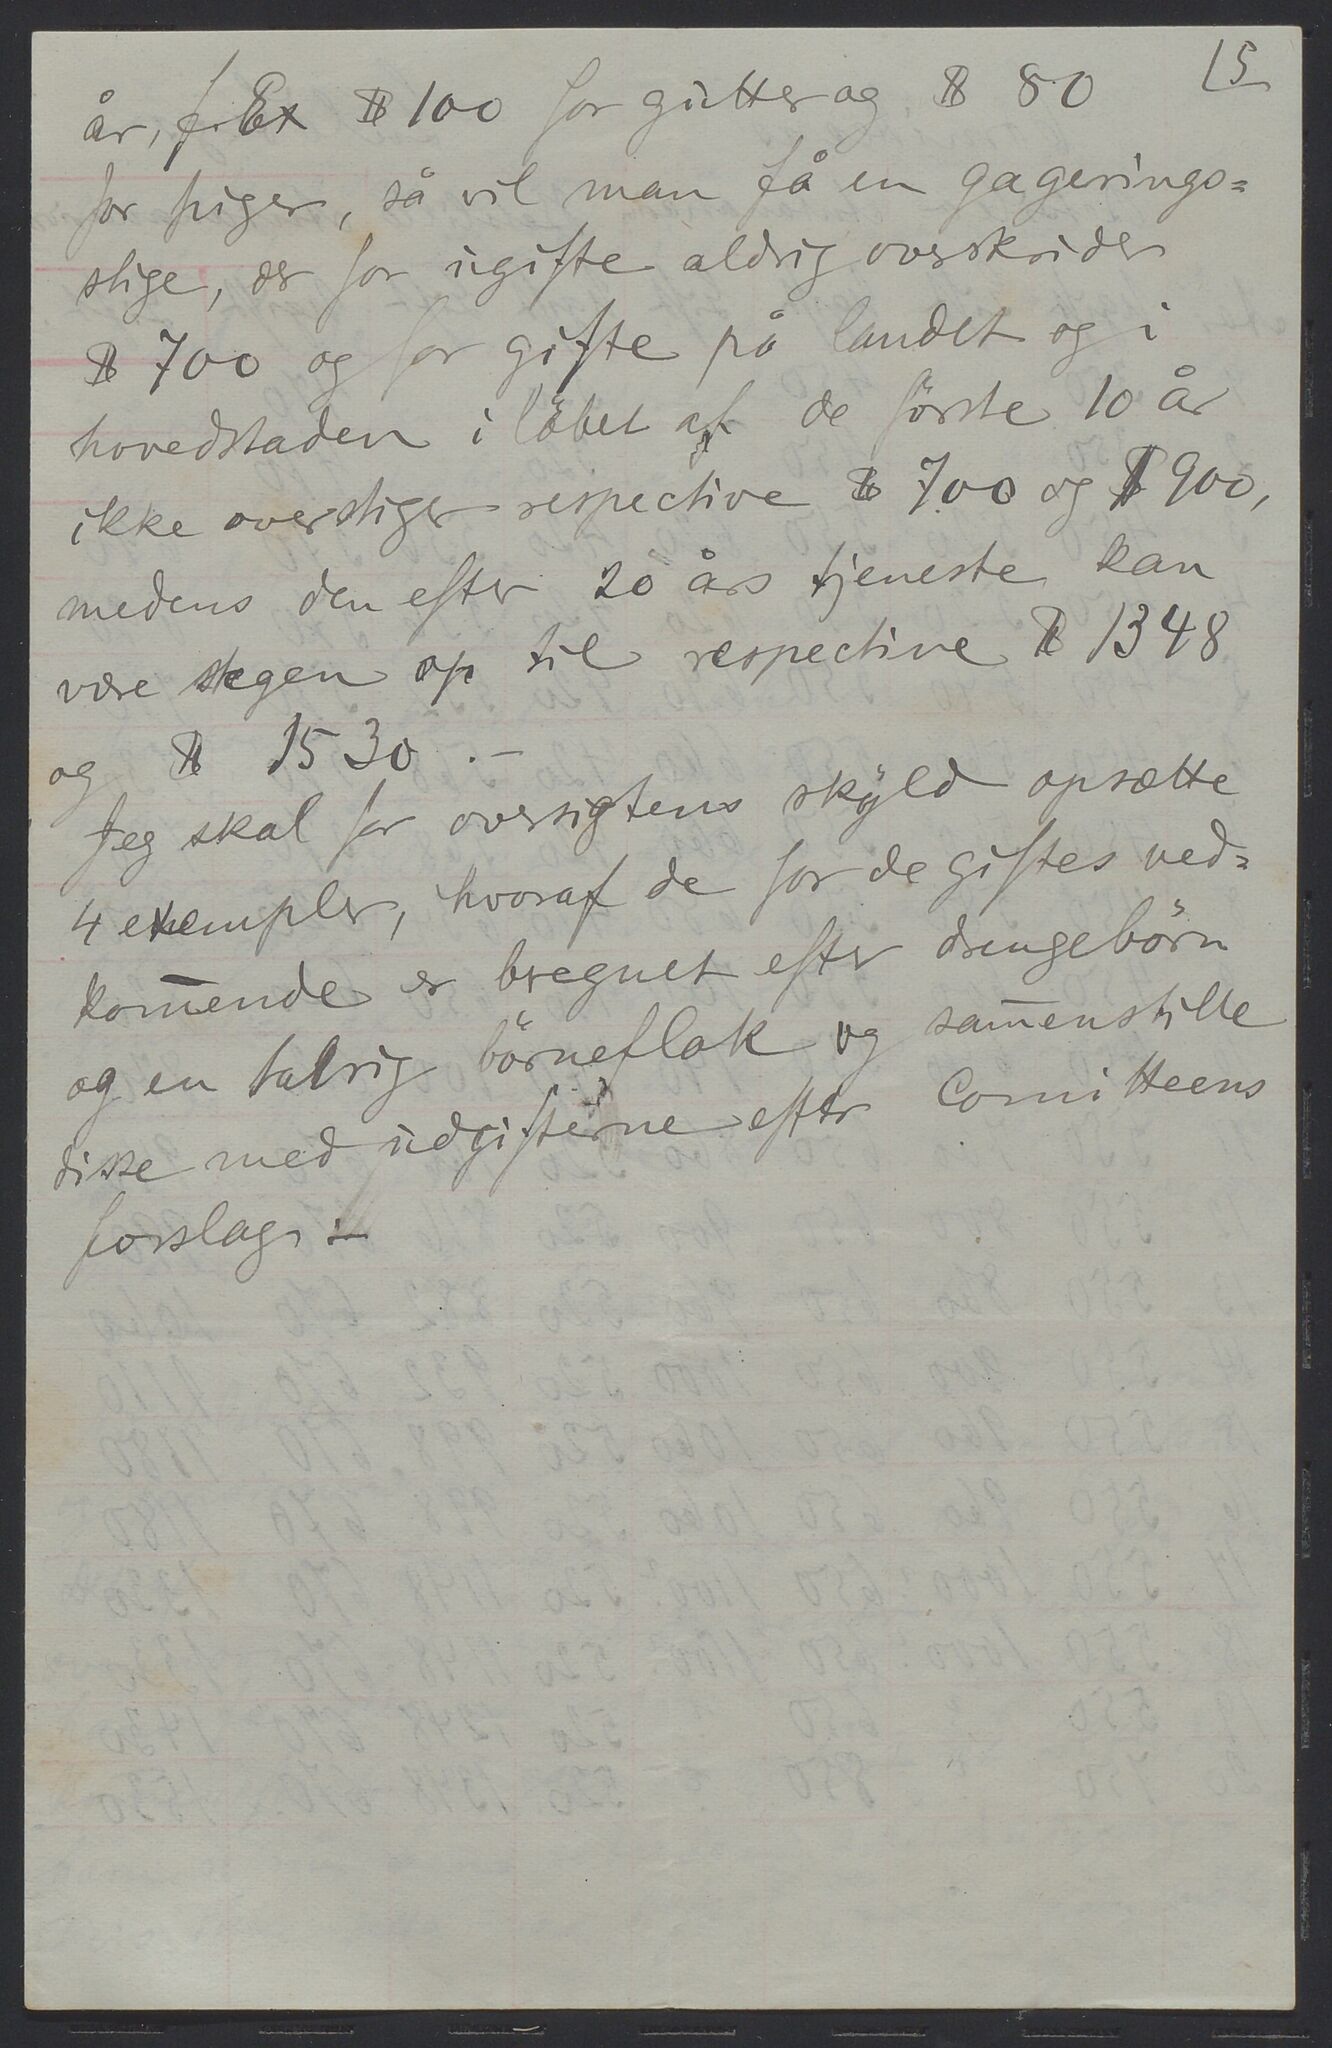 15
år, f. Ex $ 100 for gutter og $ 80
for piger, så vil man få en gagerings=
stige, der for ugifte aldrig overskrider
$ 700 og for gifte på landet og i
hovedstaden i löbet af de förste 10 år
ikke overstiger respective $ 700 og $ 900,
medens den efter 20 års tjeneste kan
være stegen op til respective $ 1348
og $ 1530 . –
Jeg skal for oversigtens skyld opsætte
4 exempler, hvoraf de for de giftes ved=
kom̅ende er beregnet efter drengebörn
og en talrig börneflok og sam̅enstille
disse med udgifterne efter Comitteens
forslag :–